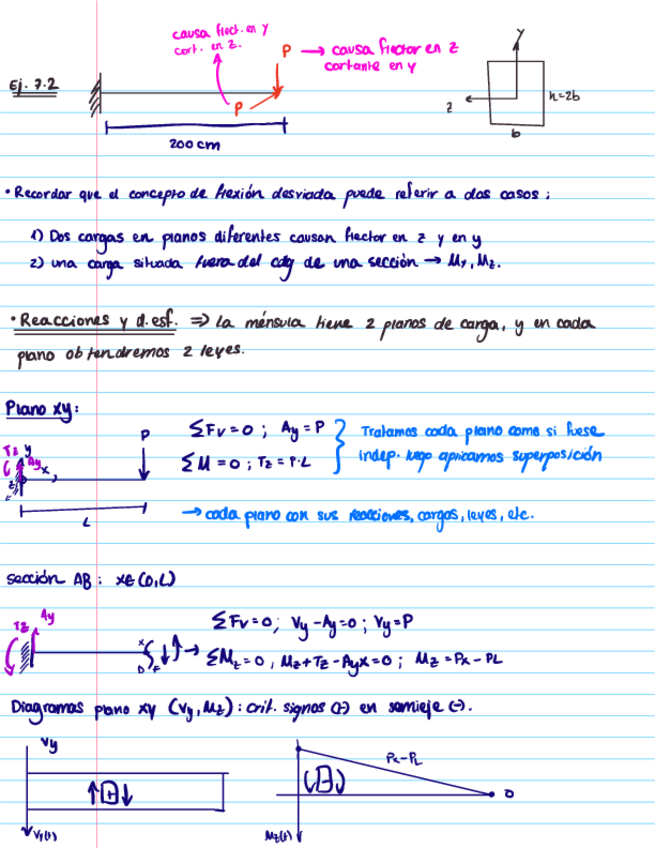 causa flect. en y
cort. en z.
P → causa flector en z
cortante en y
Ej. 7.2
P
200 cm
y
z
h=2b
b
• Recordar que el concepto de flexión desviada puede referir a dos casos:
1) Dos cargas en planos diferentes causan flector en z y en y
2) una carga situada fuera del cdg de una sección → My, Mz.
• Reacciones y d.esf. ⇒ La ménsula tiene 2 planos de carga, y en cada
plano obtendremos 2 leyes.
Plano xy:
Tz y Ay x
z
P
L
ΣFv=0 ; Ay=P
ΣM=0 ; Tz=P·L
Tratamos cada plano como si fuese
indep. luego aplicamos superposición
→ cada plano con sus reacciones, cargas, leyes, etc.
sección AB: x∈(0,L)
Tz Ay
x
ΣFv=0; Vy-Ay=0 ; Vy=P
ΣMz=0, Mz+Tz-Ayx=0 ; Mz=Px-PL
Diagramas plano xy (Vy, Mz): crit. signos (-) en semieje (-).
Vy
↑(+)↓
Vy(+)
(-)
Px-PL
0
Mz(+)